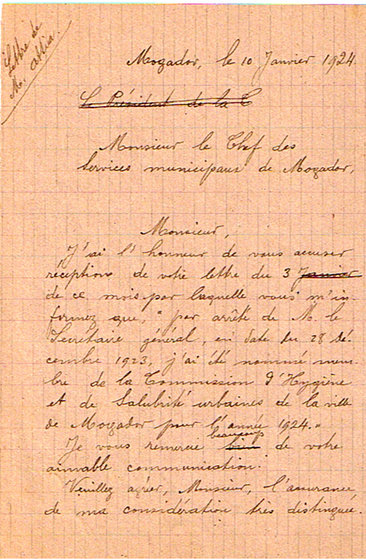 Lettre de
M. Attia
Mogador, le 10 Janvier 1924.
Le Président de la C
Monsieur le Chef des
Services municipaux de Mogador,
Monsieur,
J'ai l'honneur de vous accuser
réception de votre lettre du 3 Janvier
de ce mois par laquelle vous m'in-
formez que, "par arrêté de M. le
Secrétaire général, en date du 28 dé-
cembre 1923, j'ai été nommé mem-
bre de la Commission d'Hygiène
et de Salubrité urbaines de la ville
de Mogador pour l'année 1924."
beaucoup
Je vous remercie bien de votre
aimable communication.
Veuillez agréer, Monsieur, l'assurance
de ma considération très distinguée.